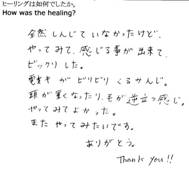 ヒーリングは如何でしたか。
How was the healing?
全然しんじていなかったけど、
やってみて、感じる事が出来て、
ビックリした。
電気がビリビリくるかんじ。
頭が重くなったり、毛が逆立つ感じ。
やってみてよかった。
またやってみたいです。
ありがとう。
Thank you!!